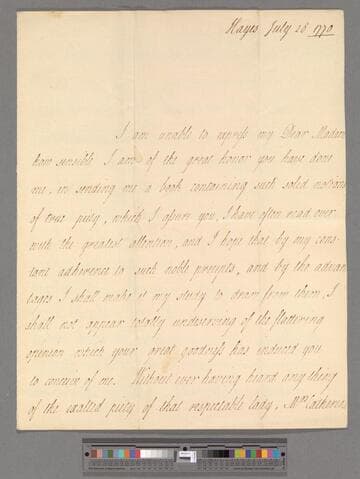 Hayes July 28 1770
I am unable to express my Dear Madam
how sensible I am of the great honor you have done
me, in sending me a book containing such solid notions
of true piety, which I assure you, I have often read over
with the greatest attention, and I hope that by my cons
tant adherence to such noble precepts, and by the advan
tages I shall make it my study to draw from them, I
shall not appear totally undeserving of the flattering
opinion which your great goodness has induced you
to conceive of me. Without ever having heard any thing
of the exalted piety of that respectable lady, Mrs Catherine